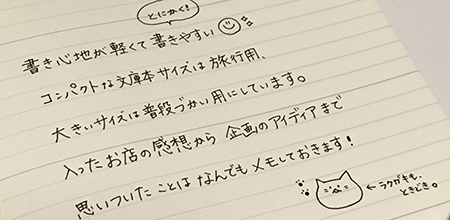 とにかく!
書き心地が軽くて書きやすい
コンパクトな文庫本サイズは旅行用、
大きいサイズは普段づかい用にしています。
入ったお店の感想から企画のアイディアまで
思いついたことはなんでもメモしておきます!
←ラクガキも、
ときどき。